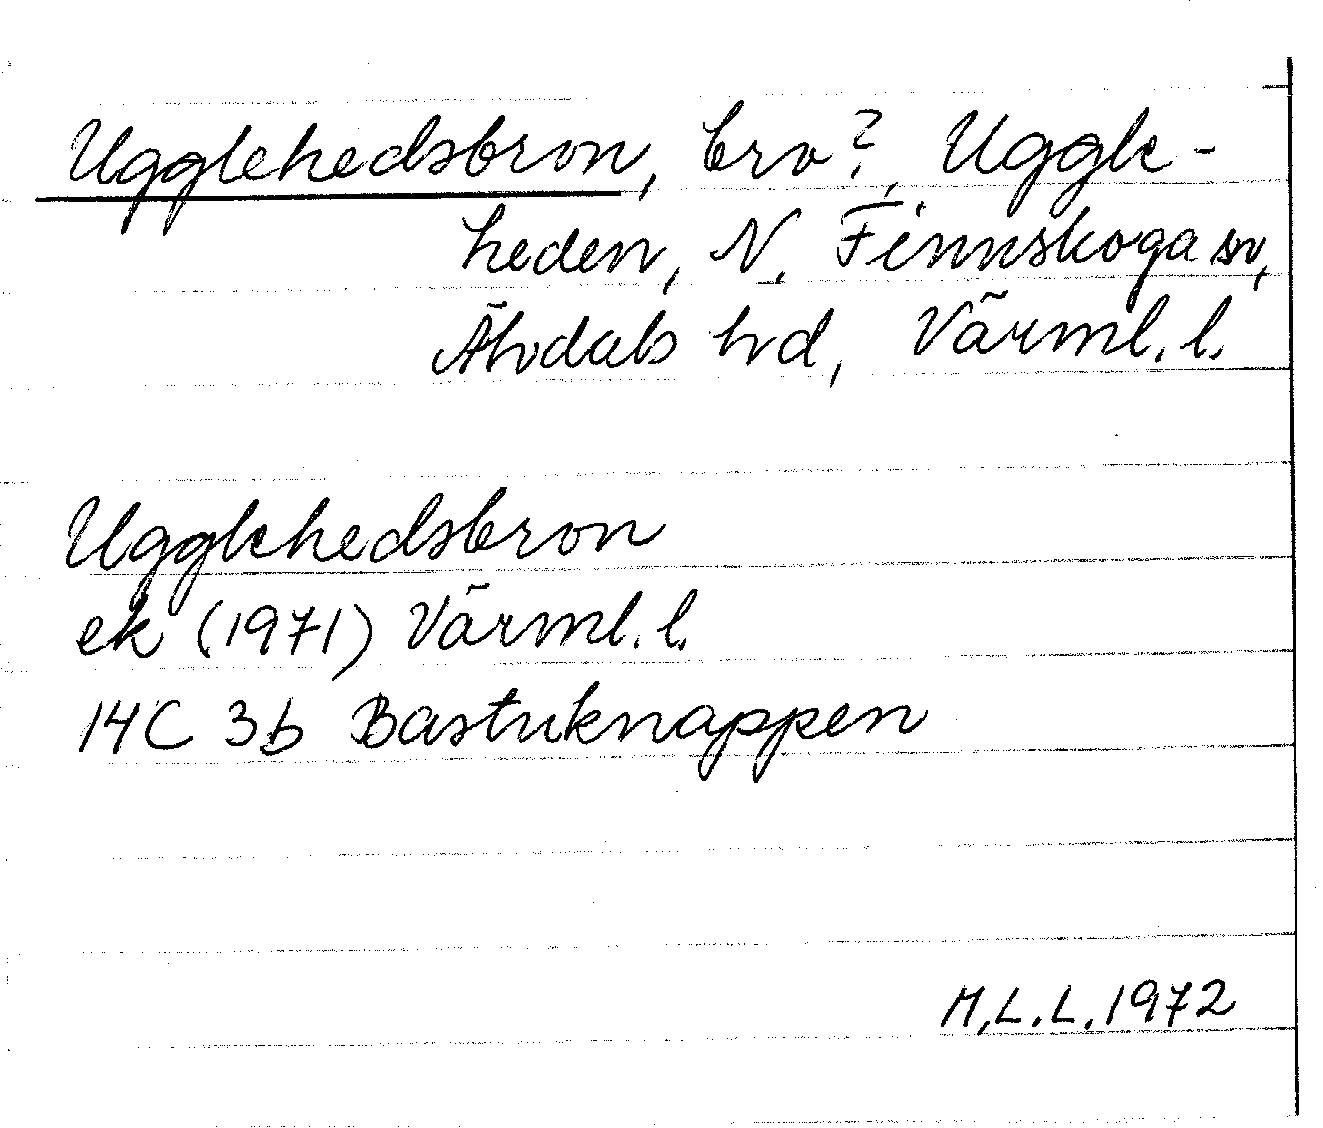 Ugglehedsbron, bro?, Uggle-
heden, N. Finnskoga sn,
Älvdals hd, Värml. l.
Ugglehedsbron
ek (1971) Värml. l.
14C 3b Bastuknappen
M.L.L. 1972